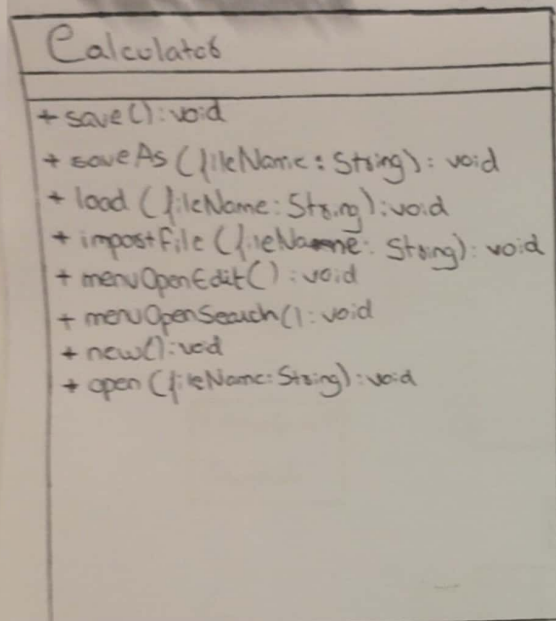 Calculator
+ save(): void
+ saveAs (fileName: String): void
+ load (fileName: String): void
+ importFile (fileName: String): void
+ menuOpenEdit(): void
+ menuOpenSearch(): void
+ new(): void
+ open (fileName: String): void